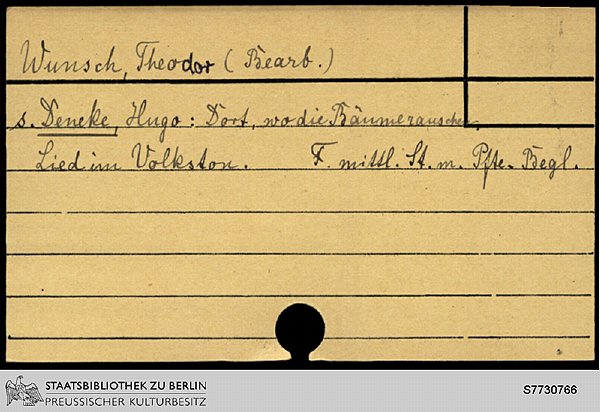 Wunsch, Theodor (Bearb.)
s. Deneke, Hugo: Dort, wo die Bäume rauschen,
Lied im Volkston. F. mittl. St. m. Pfte. Begl.
STAATSBIBLIOTHEK ZU BERLIN
PREUSSISCHER KULTURBESITZ
S7730766